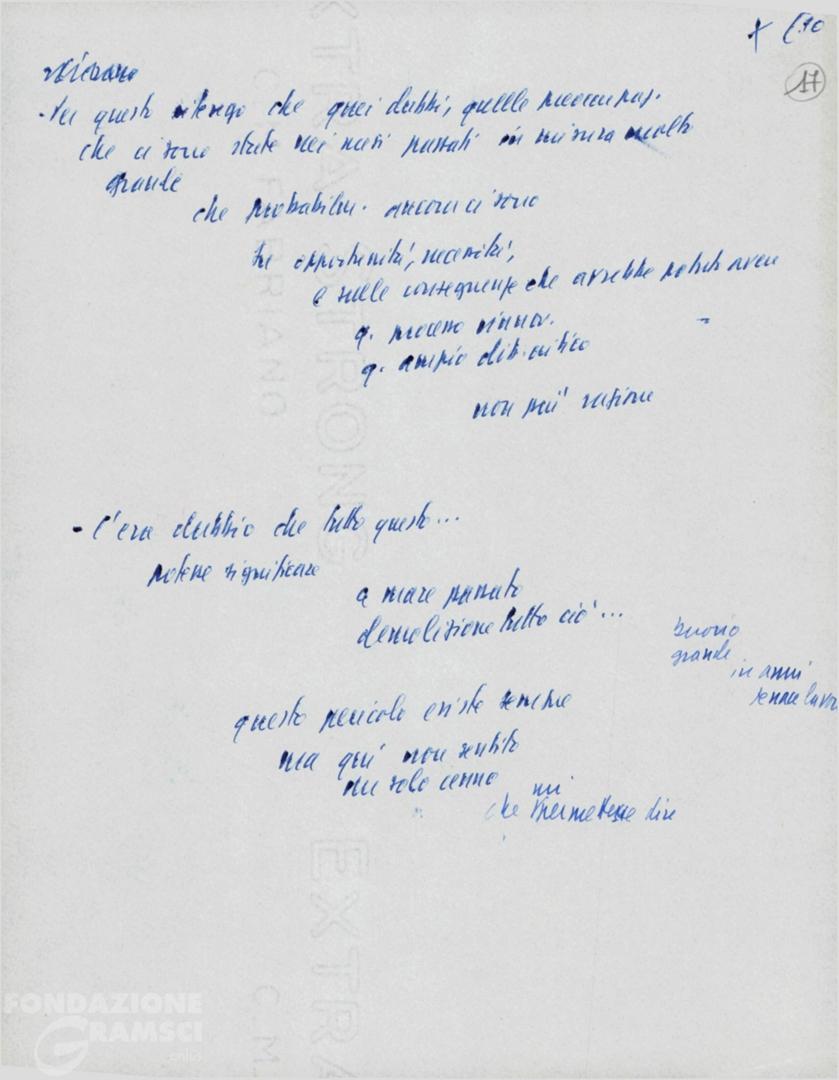 + [10
17
- Per questo ritengo che quei dubbi, quelle preoccupaz.
che ci sono state nei mesi passati in misura molto
grande
che probabilm. ancora ci sono
su opportunità, necessità,
e sulle conseguenze che avrebbe potuto avere
q. processo rinnov.
q. ampio dib. critico
non più ragione
- C'era dubbio che tutto questo...
potesse significare
a mare passato
demolizione tutto ciò...
buono
grande
in anni
lavoro
questo pericolo esiste sempre
ma qui non sentito
un solo cenno
mi
che permettesse dire
EXTRA STRONG
C.M. FABRIANO
EXTRA
C.M.
FONDAZIONE
GRAMSCI
onlus